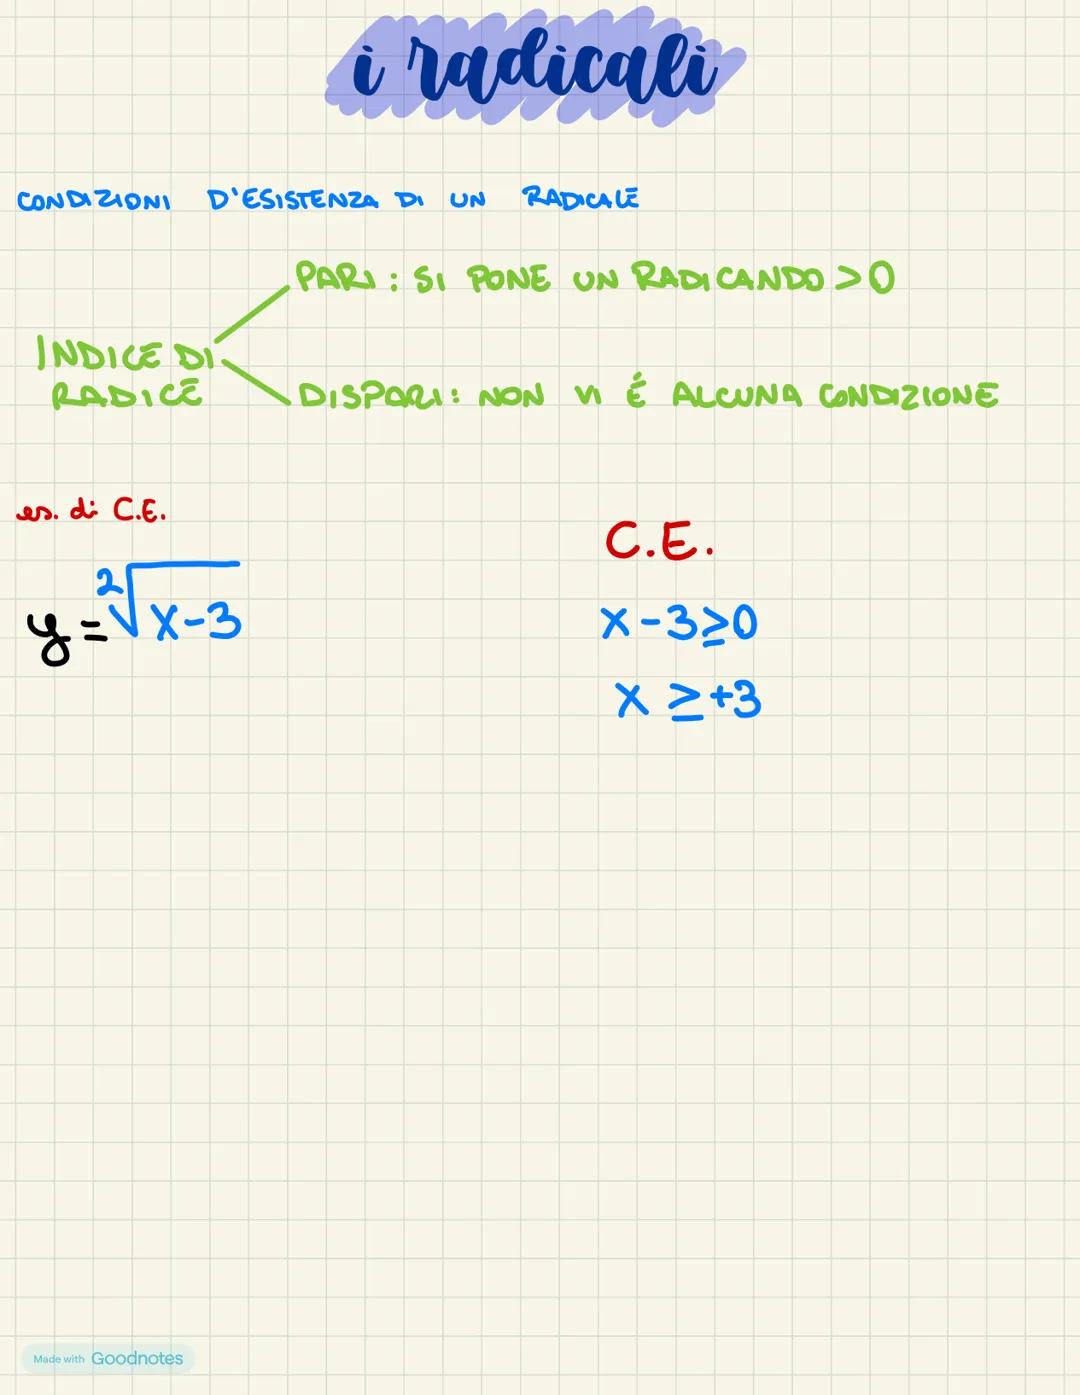 i radicali
CONDIZIONI D'ESISTENZA DI UN RADICALE
PARI: SI PONE UN RADICANDO >0
INDICE DI
RADICE
DISPARI: NON VI É ALCUNA CONDIZIONE
es. di C.E.
C.E.
y = ²√x-3
x-3≥0
x ≥+3
Made with Goodnotes